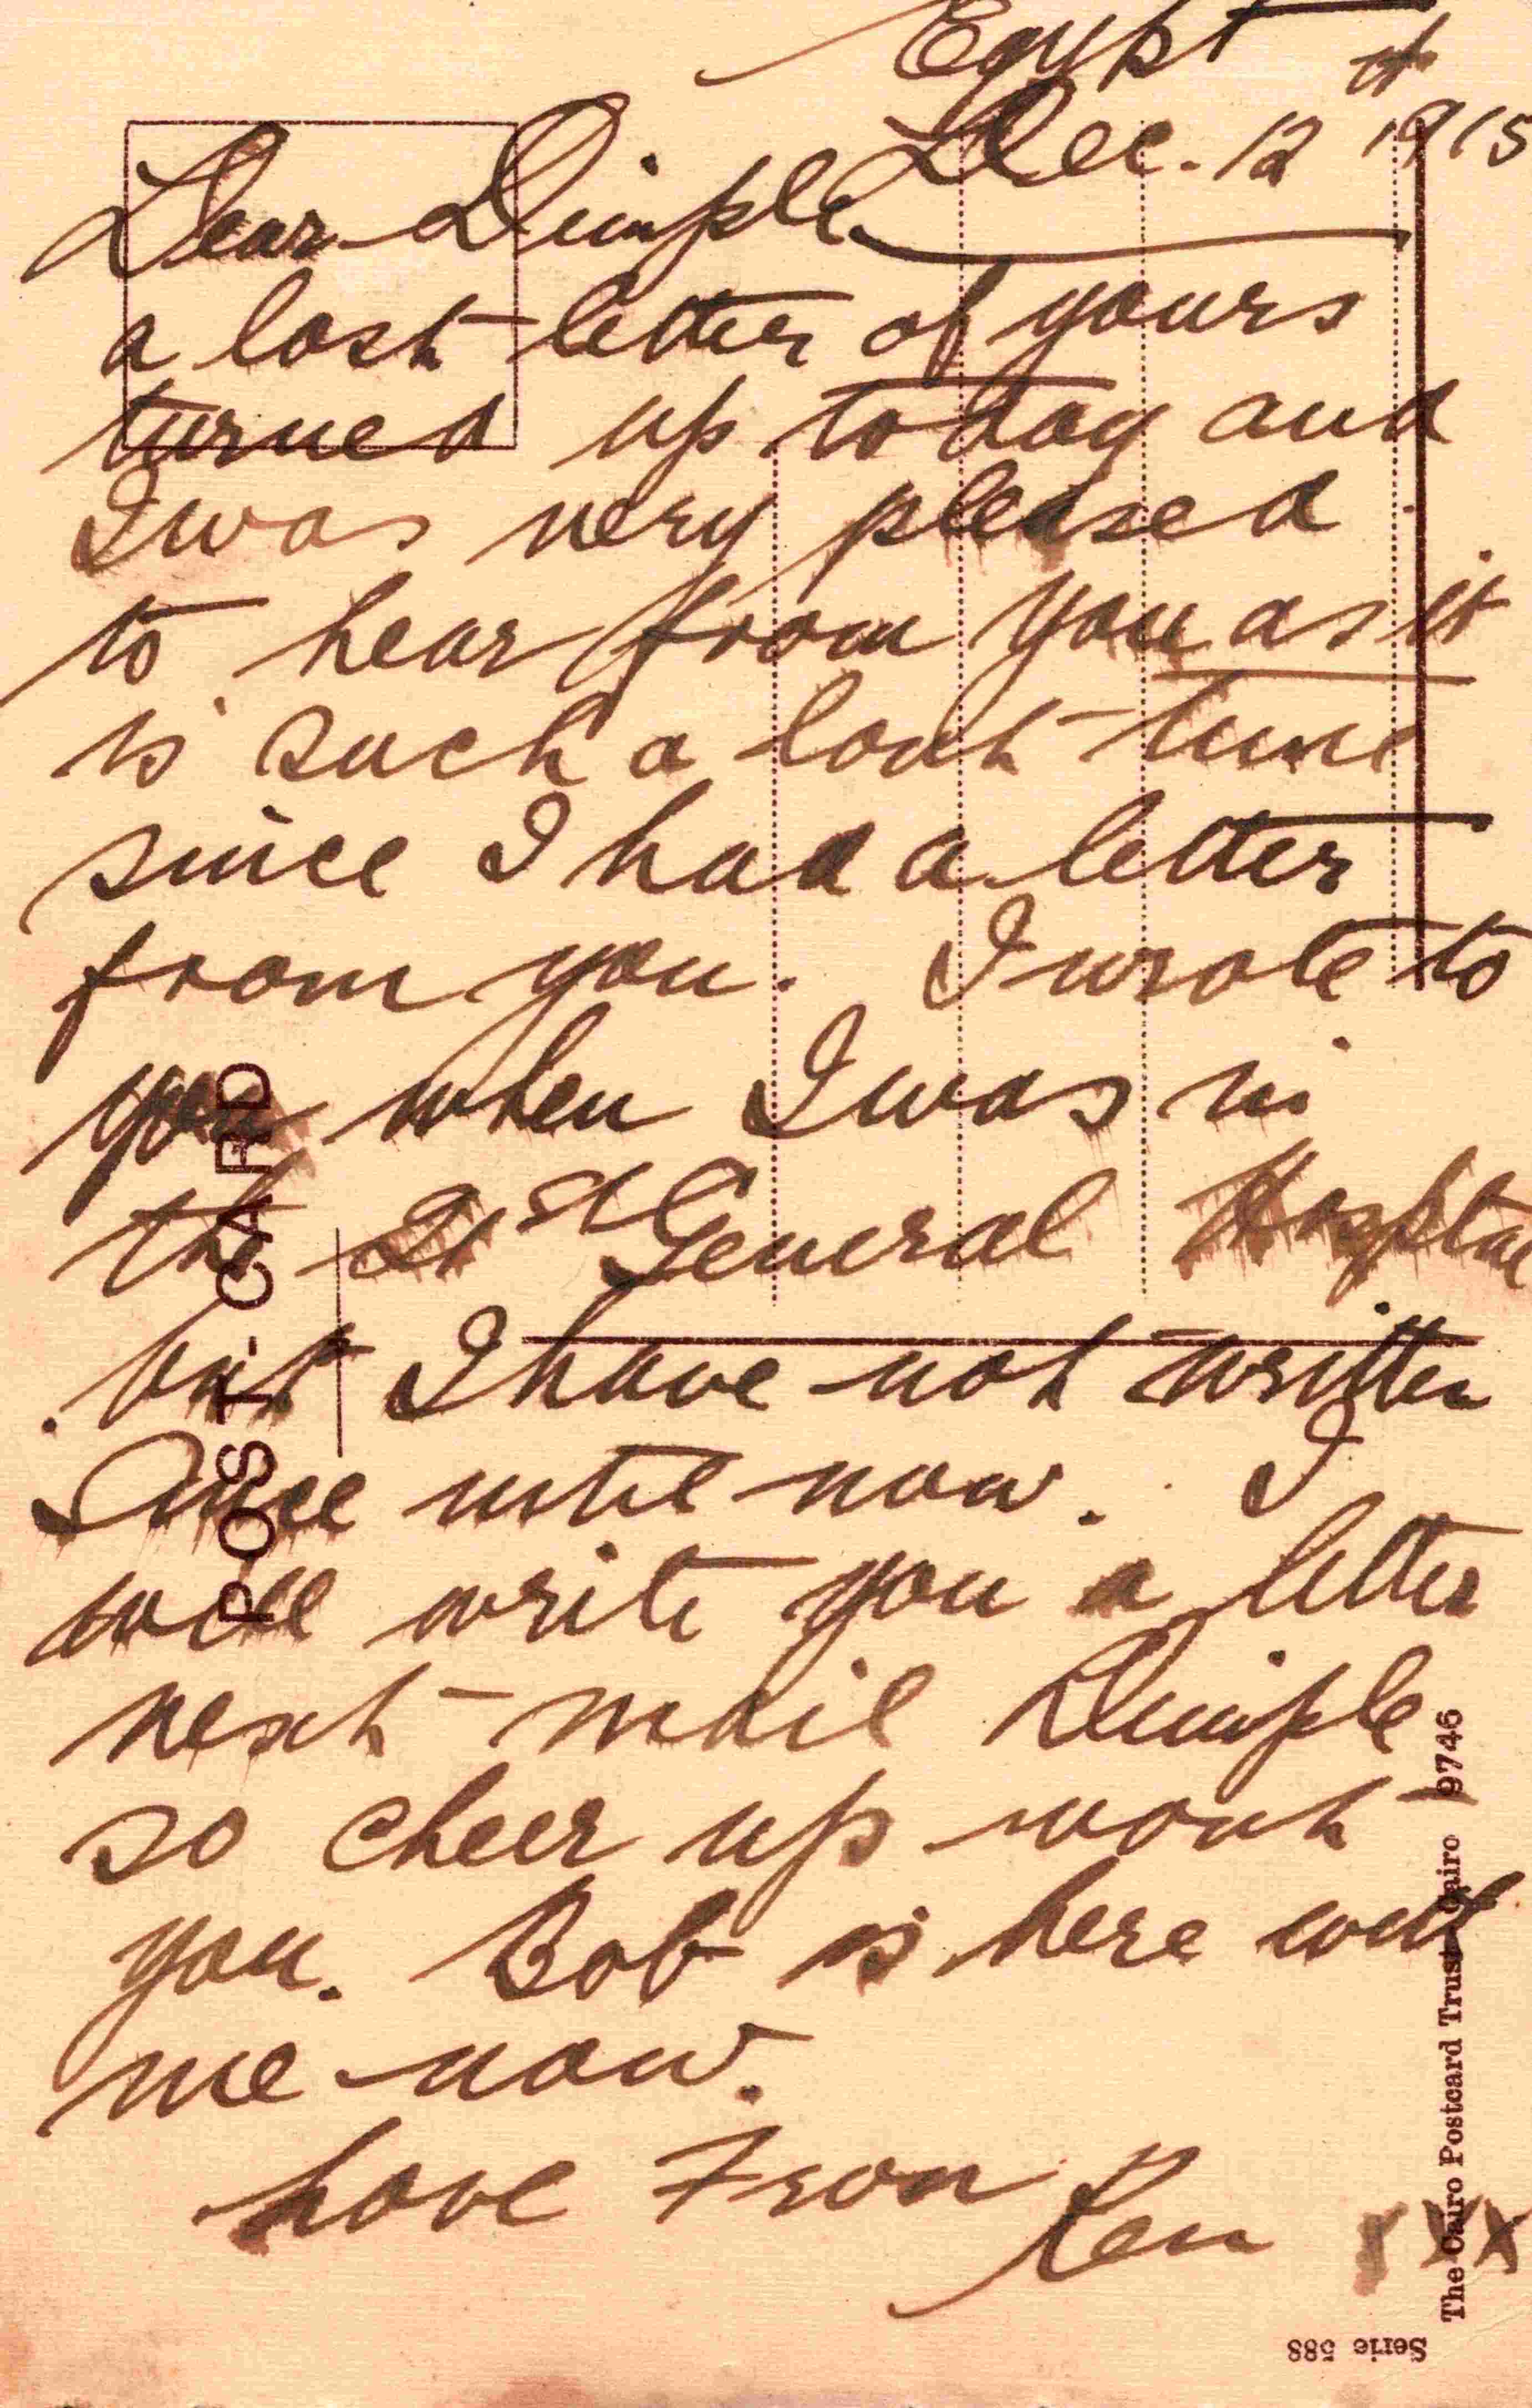 Egypt
Dec. 12th 1915
Dear Dimple
a lost letter of yours
turned up today and
I was very pleased
to hear from you as it
is such a long time
since I had a letter
from you. I wrote to
you when I was in
the 21st General Hospital
but I have not written
Since until now. I
will write you a letter
next mail Dimple
so cheer up wont
you. Bob is here with
me now.
Love From
Ken XXX
POST CARD
The Cairo Postcard Trust Cairo 9746
Serie 588